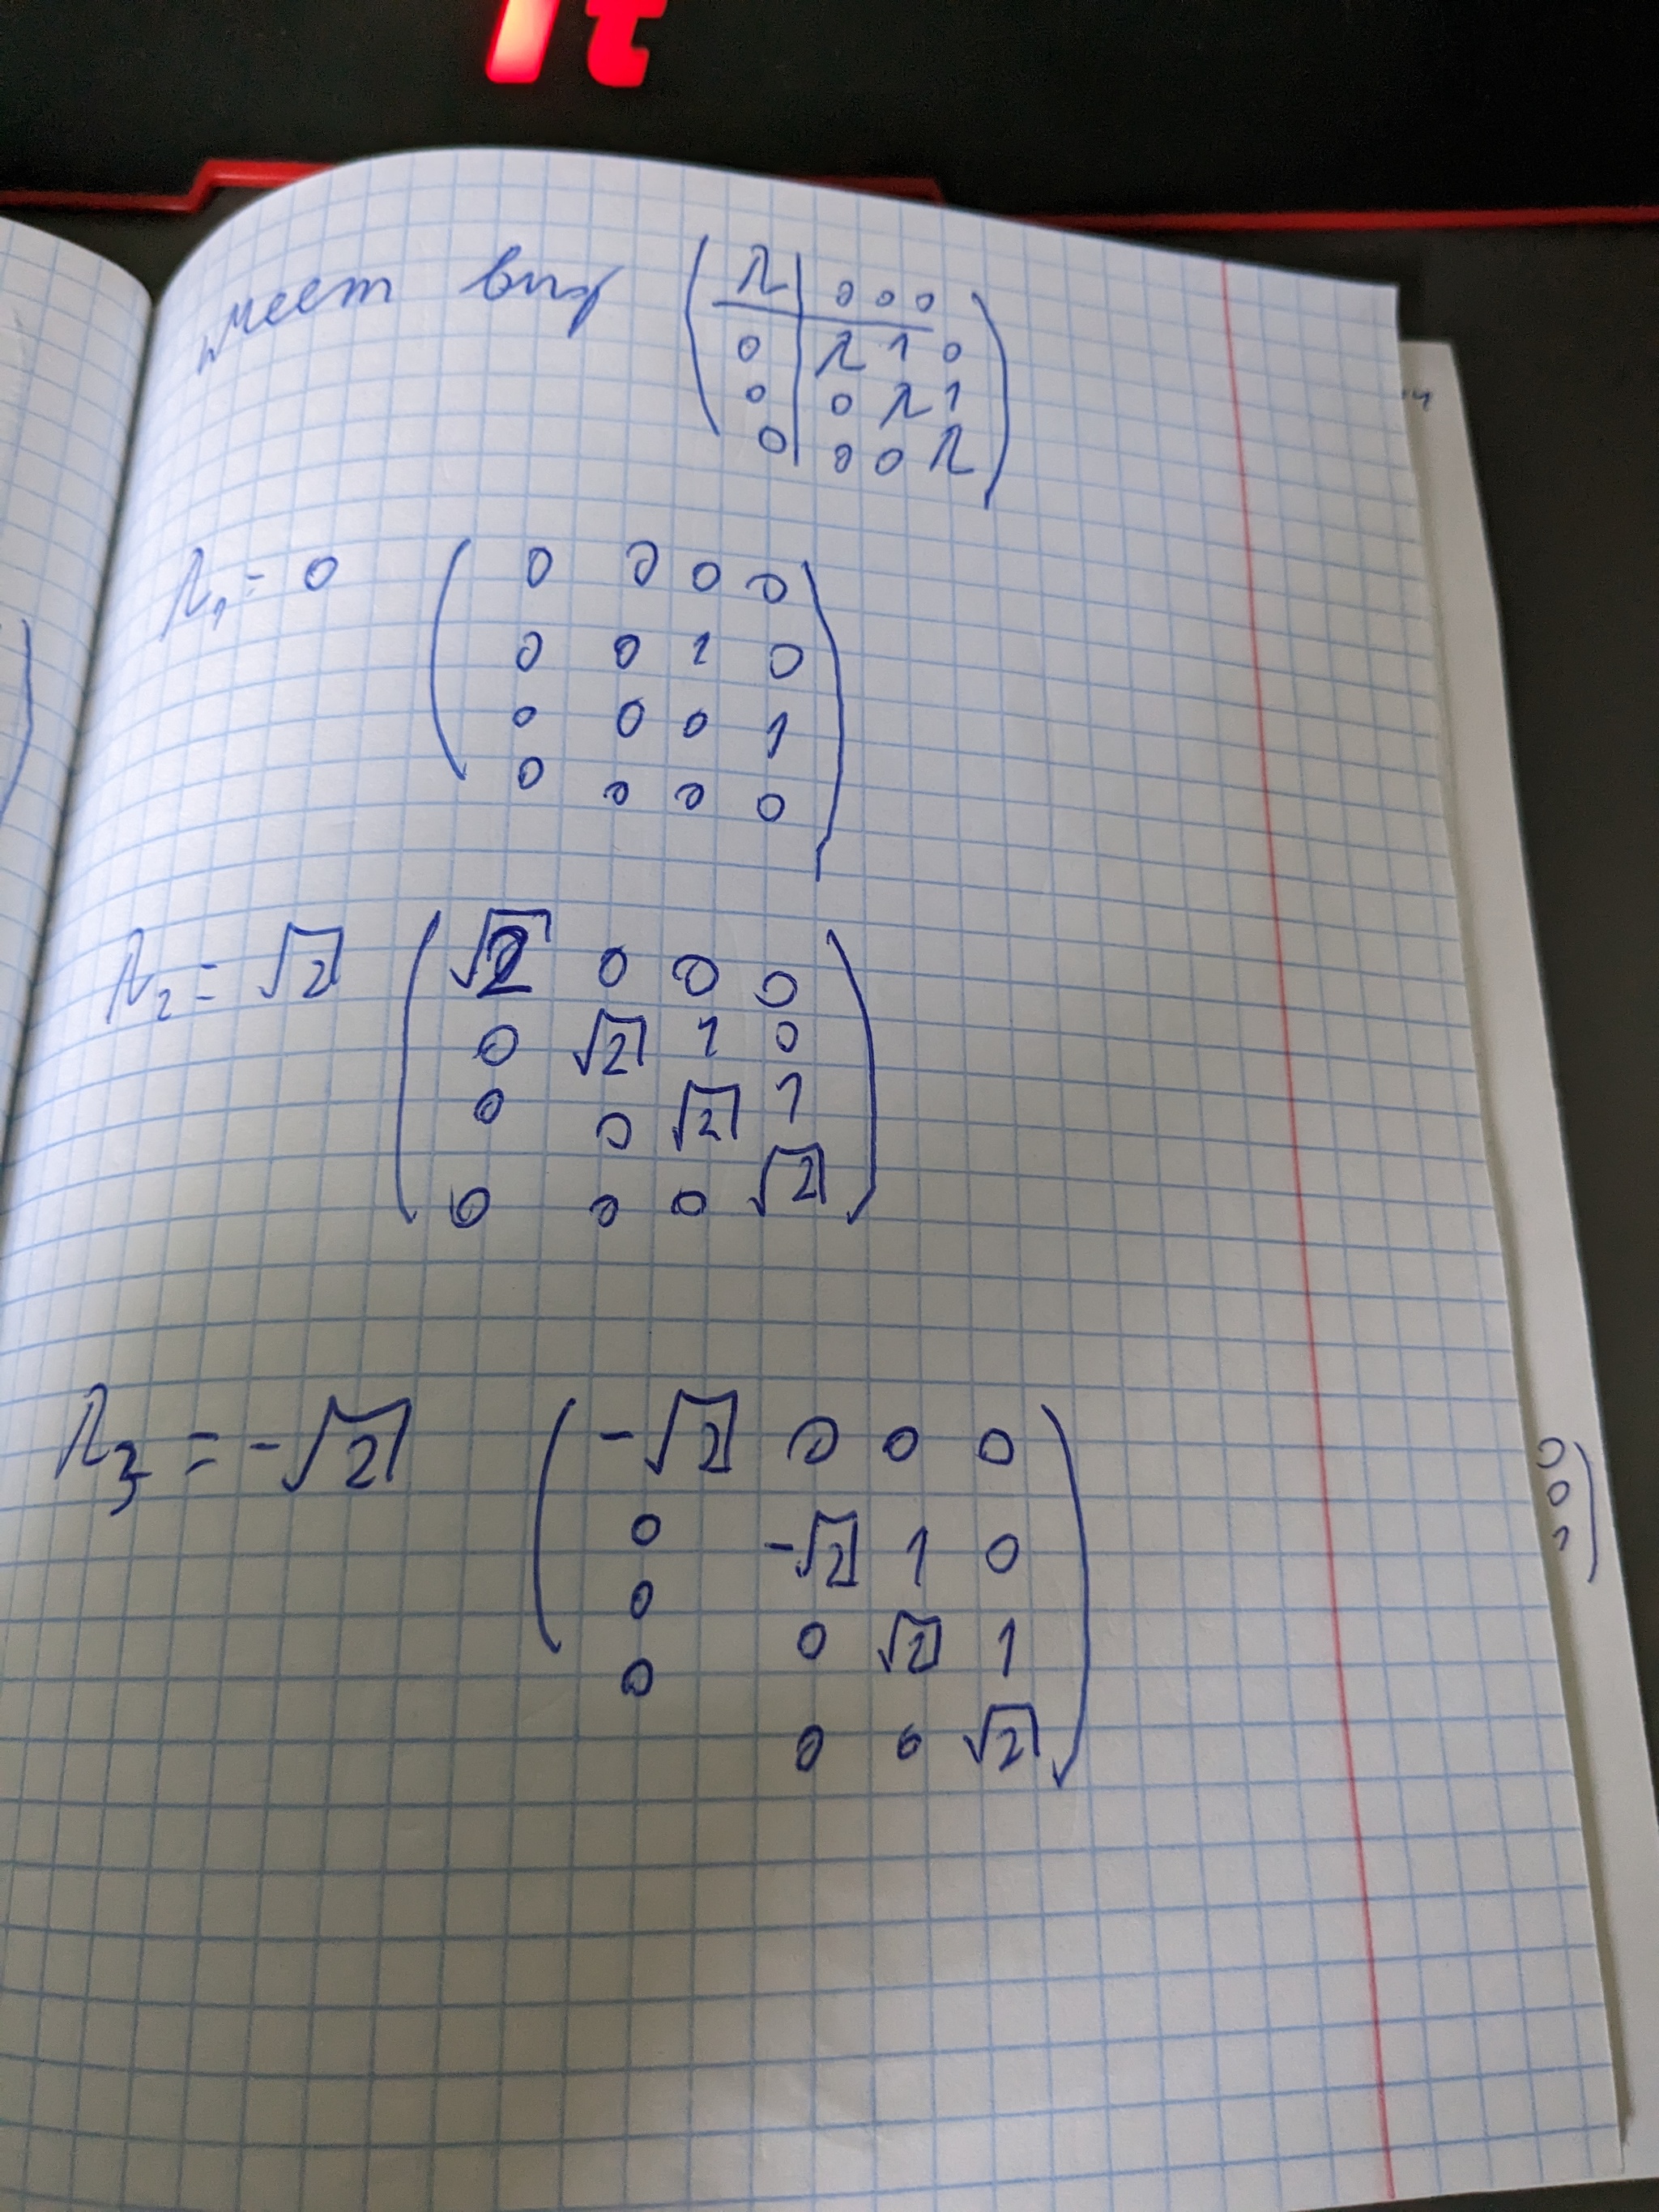 имеет вид ( λ | 0 0 0 )
0 | λ 1 0
0 | 0 λ 1
0 | 0 0 λ
λ₁ = 0 ( 0 0 0 0 )
0 0 1 0
0 0 0 1
0 0 0 0
λ₂ = √2 ( √2 0 0 0 )
0 √2 1 0
0 0 √2 1
0 0 0 √2
λ₃ = -√2 ( -√2 0 0 0 )
0 -√2 1 0
0 0 √2 1
0 0 0 √2
0
0
1